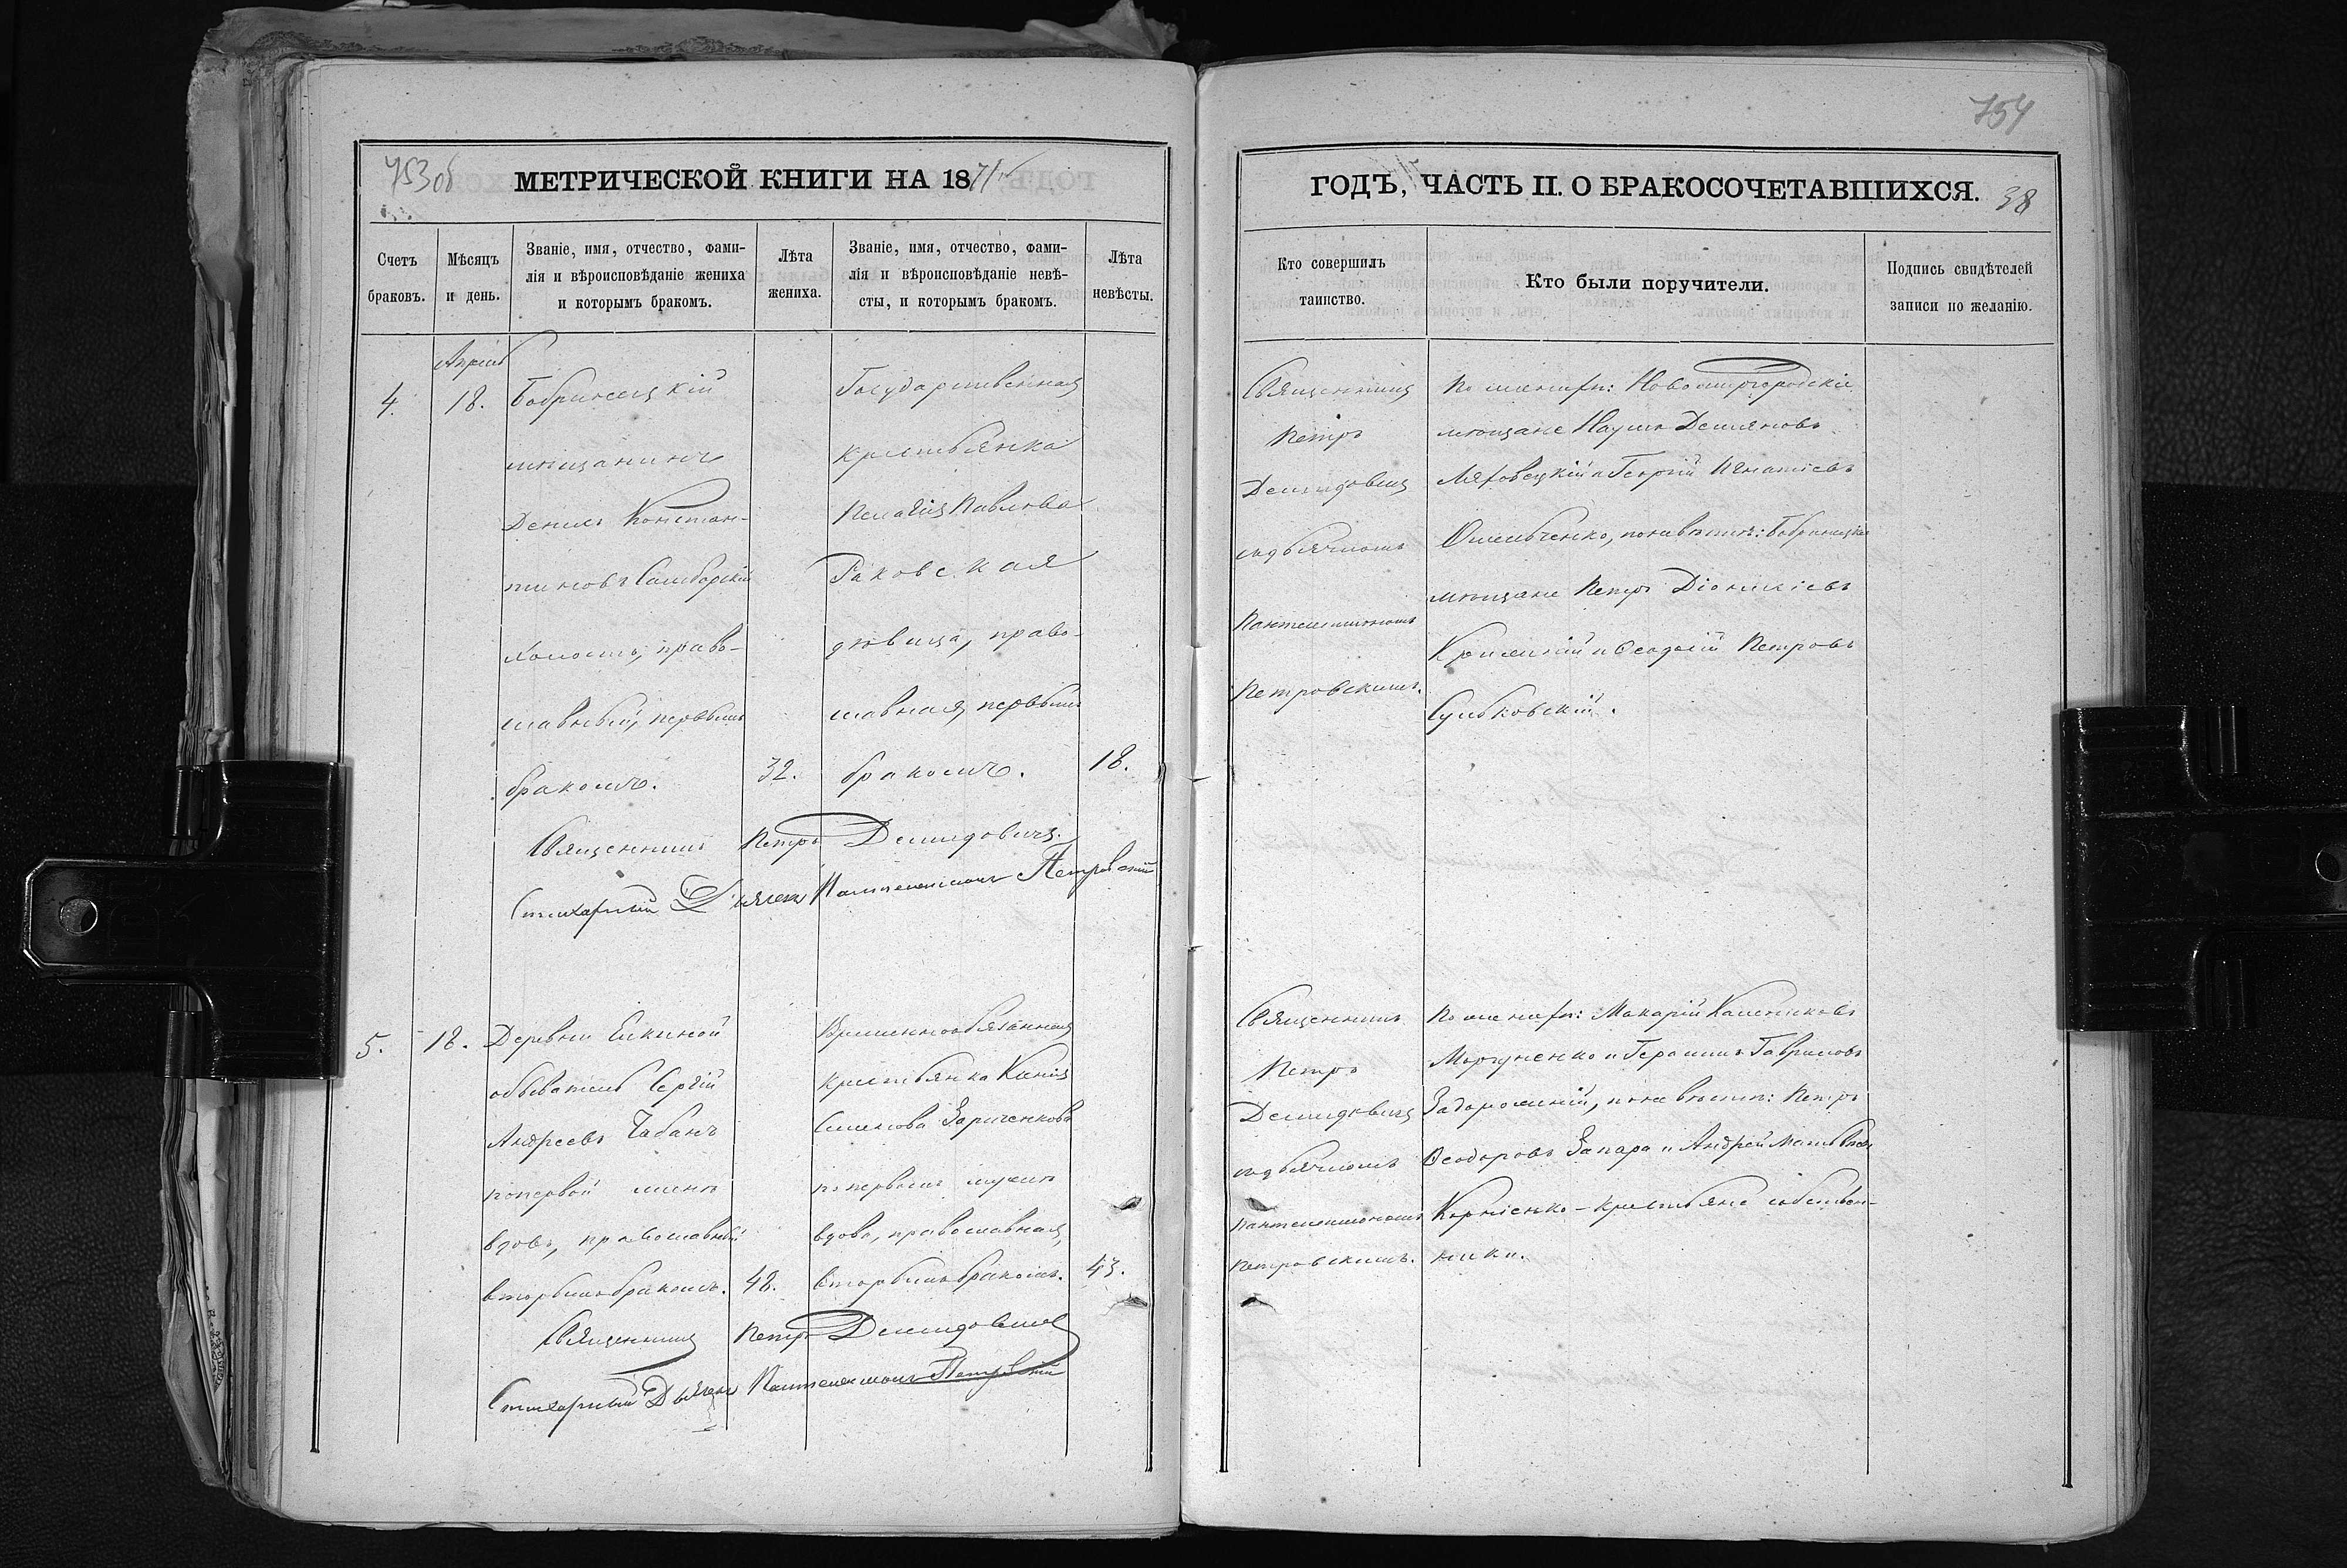 753 об
МЕТРИЧЕСКОЙ КНИГИ НА 1871
Счетъ браковъ.
Мѣсяцъ и день.
Званіе, имя, отчество, фами-
лія и вѣроисповѣданіе жениха
и которымъ бракомъ.
Лѣта
жениха.
Званіе, имя, отчество, фами-
лія и вѣроисповѣданіе невѣ-
сты, и которымъ бракомъ.
Лѣта
невѣсты.
4.
Апрѣль
18.
Бобринецкій
мѣщанинъ
Констан-
тиновъ Самборскій
холостъ, право-
славный, первымъ
бракомъ.
32.
Государственная
крестьянка
Пелагія Павлова
Раковская
дѣвица, право-
славная, первымъ
бракомъ.
18.
Священникъ Петръ Демидовичъ
Стихарный Дьячекъ Пантелеимонъ Петровскій
5.
18.
Деревни Еликиной
обыватель Сергій
Андреевъ Чабанъ
по первой женѣ
вдовъ, православный
вторымъ бракомъ.
48.
Временнообязанная
крестьянка Ксенія
Семенова Зариченкова
по первомъ мужѣ
вдова, православная,
вторымъ бракомъ.
43.
Священникъ Петръ Демидовичъ
Стихарный Дьячекъ Пантелеимонъ Петровскій
754
ГОДЪ, ЧАСТЬ II. О БРАКОСОЧЕТАВШИХСЯ.
38
Кто совершилъ
таинство.
Кто были поручители.
Подпись свидѣтелей
записи по желанію.
Священникъ
Петръ
Демидовичъ
съ дьячкомъ
Пантелеимономъ
Петровскимъ.
По жениху: Новомиргородскіе
мѣщане Наумъ Демьяновъ
Ляховецкій и Георгій Игнатіевъ
Омельченко, по невѣстѣ: Бобринецкіе
мѣщане Петръ Діонисіевъ
и Ѳеодосій Петровъ
Сулковскій.
Священникъ
Петръ
Демидовичъ
съ дьячкомъ
Пантелеимономъ
Петровскимъ.
По жениху: Макарій
Моргуненко и Герасимъ Гавриловъ
Задорожній, по невѣстѣ: Петръ
Ѳеодоровъ Запара и Андрей Матвѣевъ
Корніенко – крестьяне собствен-
ники.